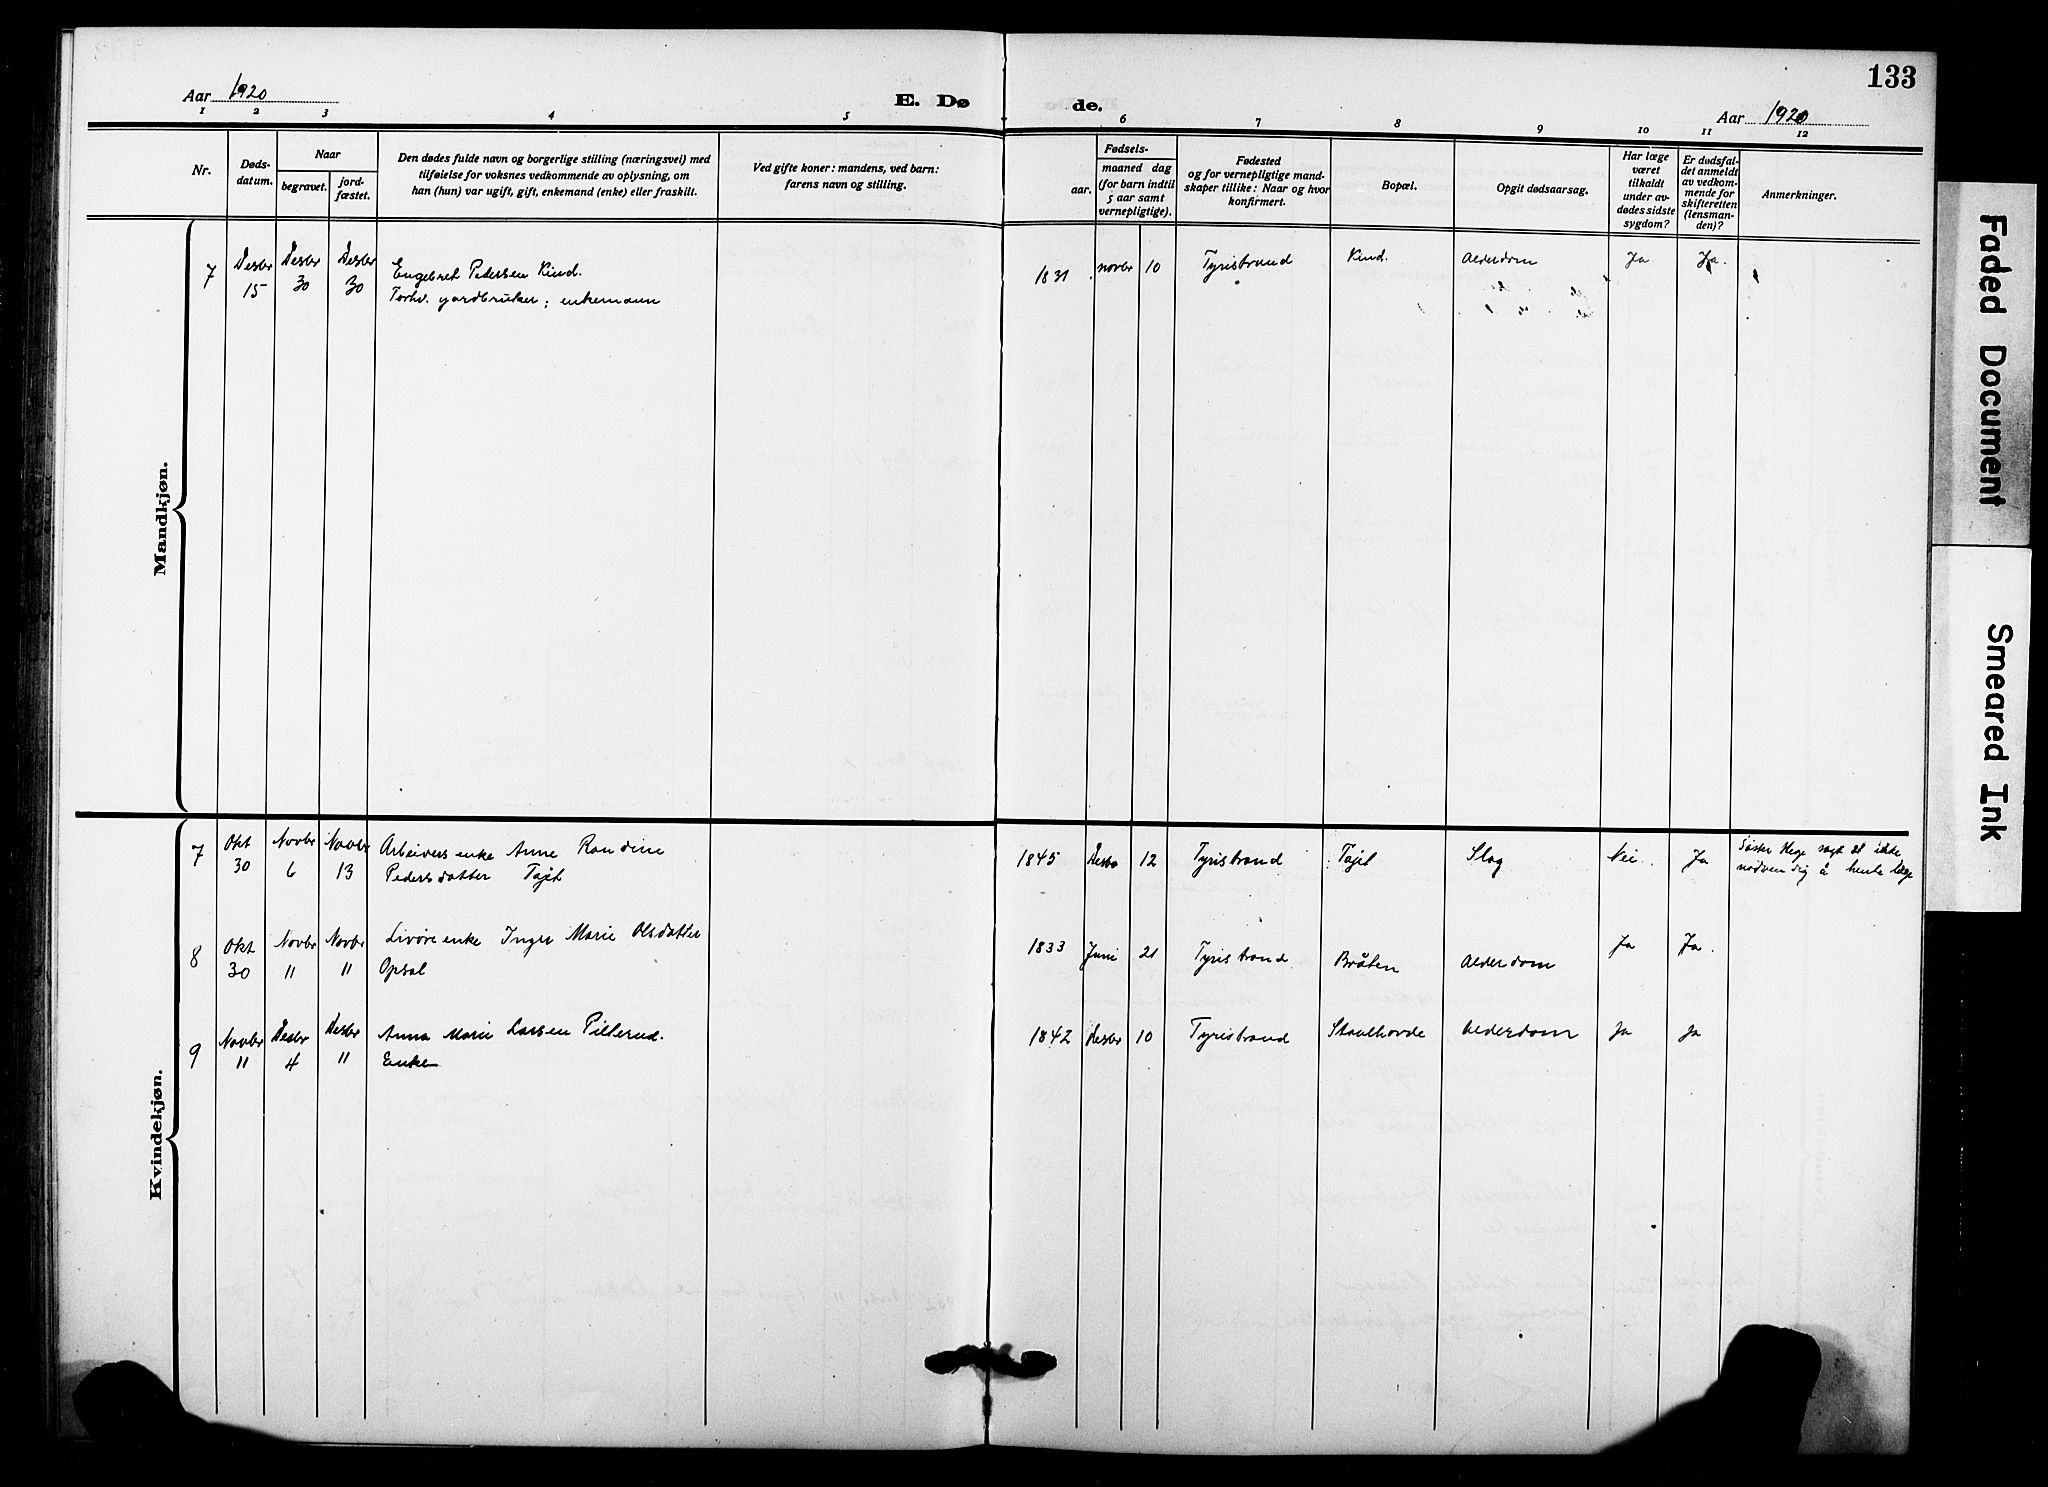 133
Aar 1920
E. Dø de.
Aar 1920
1 2 3 4 5 6 7 8 9 10 11 12
Nr.
Døds-
datum.
Naar
begravet.
jord-
fæstet.
Den dødes fulde navn og borgerlige stilling (næringsvei) med
tilføielse for voksnes vedkommende av oplysning, om
han (hun) var ugift, gift, enkemand (enke) eller fraskilt.
Ved gifte koner: mandens, ved barn:
farens navn og stilling.
Fødsels-
aar.
maaned dag
(for barn indtil
5 aar samt
vernepligtige).
Fødested
og for vernepligtige mand-
skaper tillike: Naar og hvor
konfirmert.
Bopæl.
Opgit dødsaarsag.
Har læge
været
tilkaldt
under av-
dødes sidste
sygdom?
Er dødsfal-
det anmeldt
av vedkom-
mende for
skifteretten
(lensman-
den)?
Anmerkninger.
Mandkjøn.
7 Desbr 15 Desbr 30 Desbr 30 Engebret Pedersen Kind. 1831 novbr 10 Tyristrand Kind. Alderdom Ja Ja
Forhv. gardbruker; enkemann
Kvindekjøn.
7 Okt 30 Novbr 6 Novbr 13 Arbeiders enke Anne Randine 1845 Desbr 12 Tyristrand Tajet Slag Nei Ja Søster Hege sagt at ikke
Pedersdatter Tajet nødvendig å hente læge
8 Okt 30 Novbr 11 Novbr 11 Livøre enke Inger Marie Olsdatter 1833 Juni 21 Tyristrand Bråten Alderdom Ja Ja
Opsal
9 Novbr 11 Desbr 4 Desbr 11 Anna Marie Larsen Pilterud. 1842 Desbr 10 Tyristrand Staalhovde Alderdom Ja Ja
Enke
Faded Document
Smeared Ink